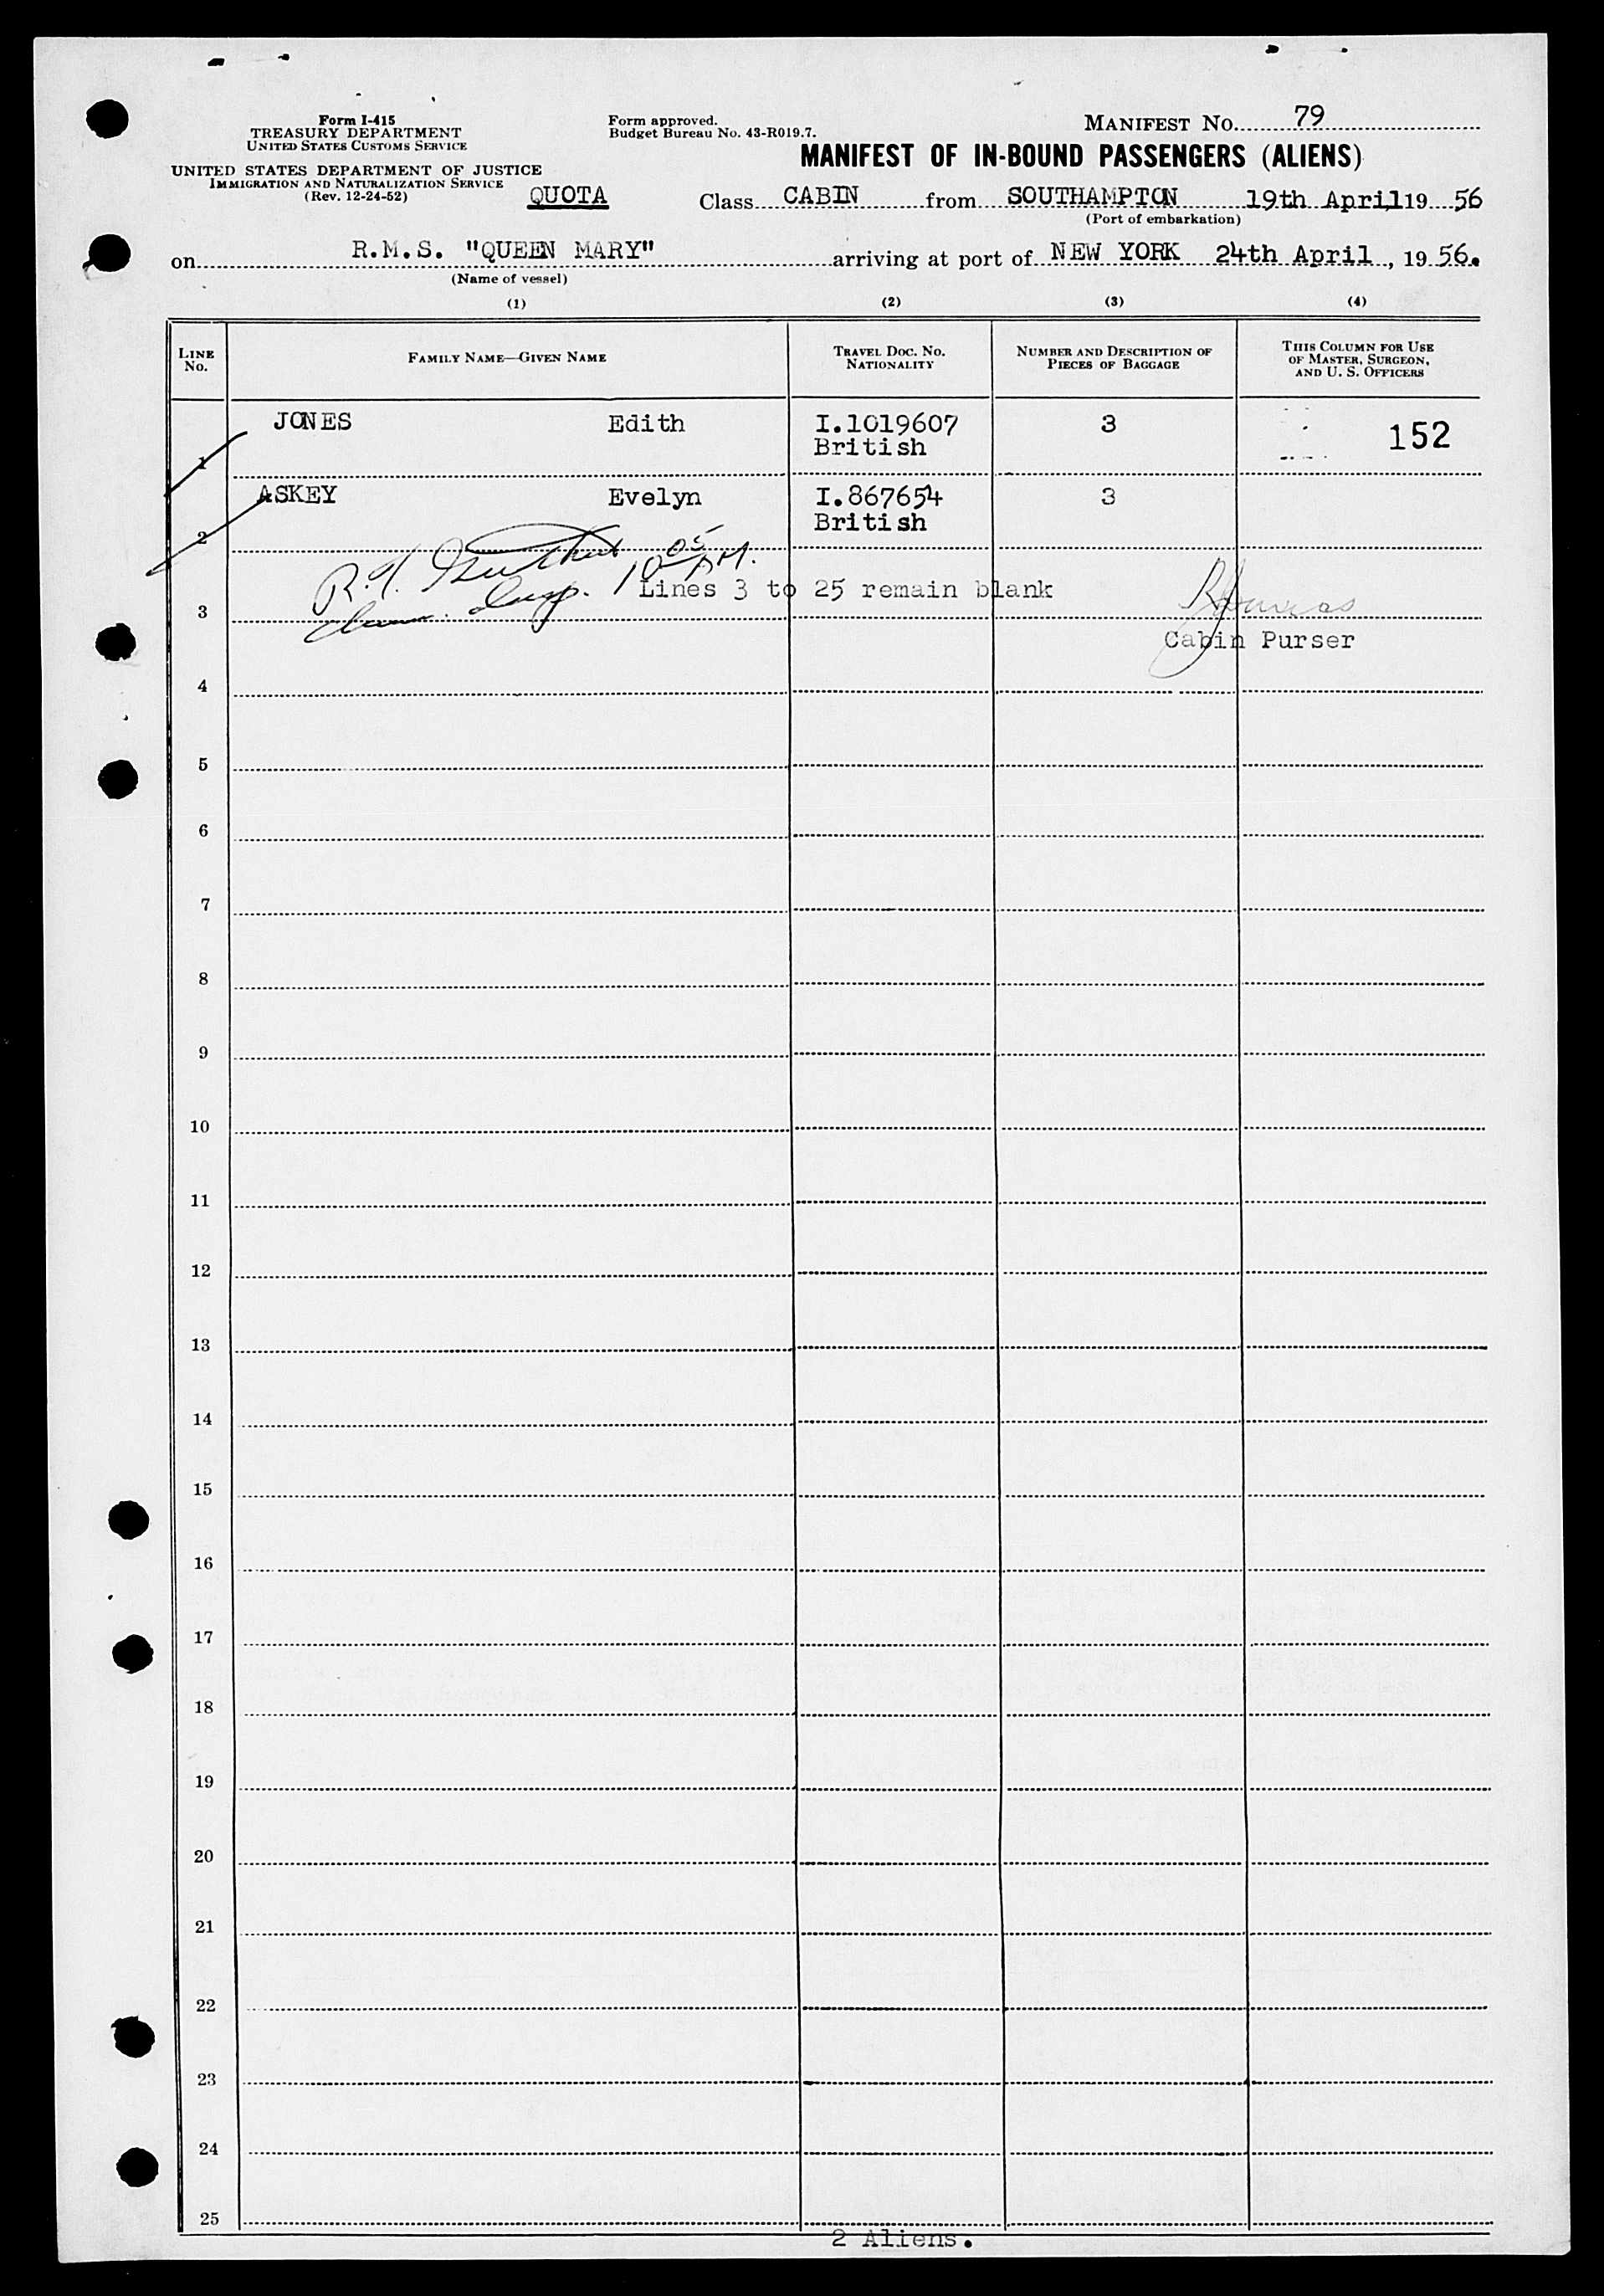 Form I-415
TREASURY DEPARTMENT
UNITED STATES CUSTOMS SERVICE
UNITED STATES DEPARTMENT OF JUSTICE
IMMIGRATION AND NATURALIZATION SERVICE
(Rev. 12-24-52)
QUOTA
Form approved.
Budget Bureau No. 43-R019.7.
MANIFEST NO. 79
MANIFEST OF IN-BOUND PASSENGERS (ALIENS)
Class CABIN from SOUTHAMPTON 19th April, 19 56
(Port of embarkation)
on R.M.S. "QUEEN MARY" arriving at port of NEW YORK 24th April, 19 56.
(Name of vessel)
(1) (2) (3) (4)
LINE No. FAMILY NAME—GIVEN NAME TRAVEL DOC. NO. NATIONALITY NUMBER AND DESCRIPTION OF PIECES OF BAGGAGE THIS COLUMN FOR USE OF MASTER, SURGEON, AND U. S. OFFICERS
1 JONES Edith I.1019607 3 152
British
2 ASKEY Evelyn I.867654 3
British
10 05 PM.
Lines 3 to 25 remain blank
3
Cabin Purser
4
5
6
7
8
9
10
11
12
13
14
15
16
17
18
19
20
21
22
23
24
25
2 Aliens.